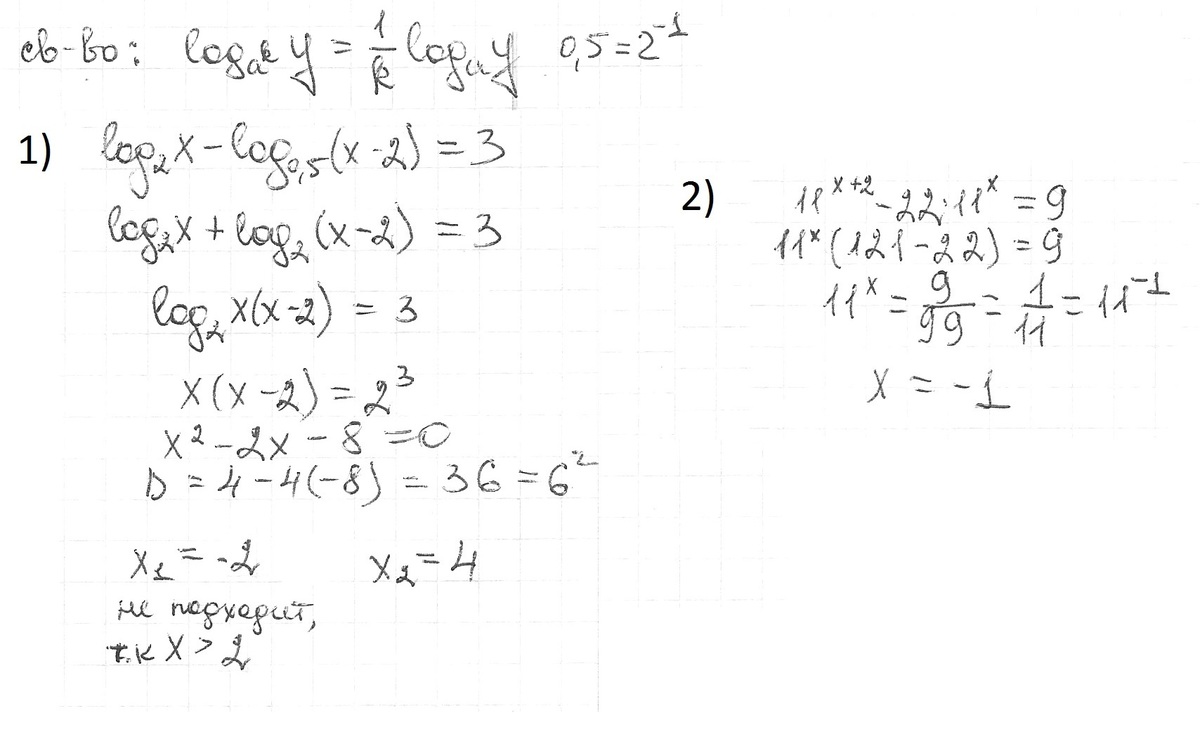 св-во: log_{a^k} y = \frac{1}{k} log_a y   0,5 = 2^{-1}
1) log_2 x - log_{0,5}(x-2) = 3
log_2 x + log_2 (x-2) = 3
log_2 x(x-2) = 3
x(x-2) = 2^3
x^2 - 2x - 8 = 0
D = 4 - 4(-8) = 36 = 6^2
x_1 = -2   x_2 = 4
не подходит,
т.к x > 2
2) 11^{x+2} - 22·11^x = 9
11^x (121-22) = 9
11^x = \frac{9}{99} = \frac{1}{11} = 11^{-1}
x = -1